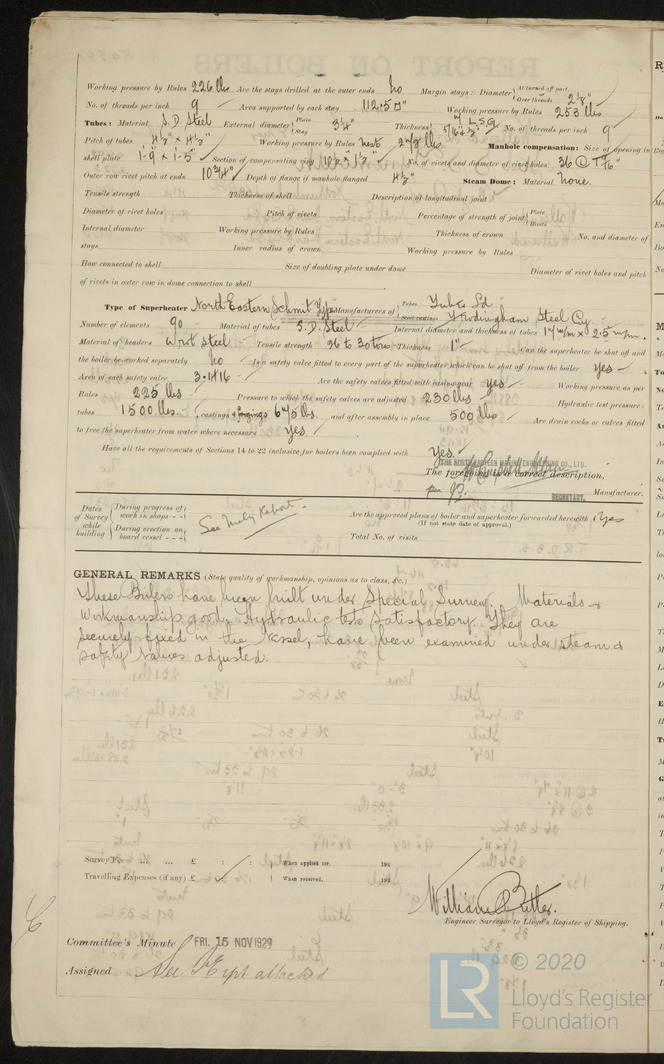 Working pressure by Rules 226 lbs Are the stays drilled at the outer ends no Margin stays: Diameter { At turned off part, or Over threads 2 1/8"
No. of threads per inch 9 Area supported by each stay 112.5 □" Working pressure by Rules 253 lbs
Tubes: Material S.D. Steel External diameter { Plain Stay 3 1/4" Thickness { 7 L.S.G. 5/16" No. of threads per inch 9
Pitch of tubes 4 1/2" × 4 1/2" Working pressure by Rules Manhole compensation: Size of opening in
shell plate 1-9 × 1-5" Section of compensating ring No. of rivets and diameter of rivet holes 36 @
Outer row rivet pitch at ends 10 3/4" Depth of flange if manhole flanged 4 1/2" Steam Dome: Material None.
Tensile strength Thickness of shell Description of longitudinal joint
Diameter of rivet holes Pitch of rivets Percentage of strength of joint { Plate Rivets
Internal diameter Working pressure by Rules Thickness of crown No. and diameter of
stays Inner radius of crown Working pressure by Rules
How connected to shell Size of doubling plate under dome Diameter of rivet holes and pitch
of rivets in outer row in dome connection to shell
Type of Superheater North Eastern Schmit Type Manufacturers of { Tubes Tubes Ld Steel Coy.
Number of elements 90 Material of tubes S.D. Steel Internal diameter and thickness of tubes 17 m/m × 2.5 m/m.
Material of headers Wrt Steel Tensile strength 26 to 30 tons Thickness 1" Can the superheater be shut off and
the boiler be worked separately no Is a safety valve fitted to every part of the superheater which can be shut off from the boiler yes
Area of each safety valve 3.1416 Are the safety valves fitted with easing gear yes Working pressure as per
Rules 225 lbs Pressure to which the safety valves are adjusted 230 lbs Hydraulic test pressure:
tubes 1500 lbs. castings & forgings 675 lbs. and after assembly in place 500 lbs Are drain cocks or valves fitted
to free the superheater from water where necessary yes
Have all the requirements of Sections 14 to 22 inclusive for boilers been complied with Yes
THE NORTH EASTERN MARINE ENGINEERING CO., LTD.
The foregoing is a correct description,
SECRETARY. Manufacturer.
Dates of Survey while building { During progress of work in shops - - } See Mchy Report. Are the approved plans of boiler and superheater forwarded herewith Yes
(If not state date of approval.)
{ During erection on board vessel - - - } Total No. of visits
GENERAL REMARKS (State quality of workmanship, opinions as to class, &c.)
These Boilers have been built under Special Survey. Materials &
Workmanship good. Hydraulic tests satisfactory. They are
securely fixed in the Vessel, have been examined under steam &
safety Valves adjusted.
Survey Fee ... ... £ : : When applied for, 192
Travelling Expenses (if any) £ : : When received, 192
William Butler.
Engineer Surveyor to Lloyd's Register of Shipping.
Committee's Minute FRI. 15 NOV 1929
Assigned See F.E. rpt attached
© 2020
LR Lloyd's Register
Foundation